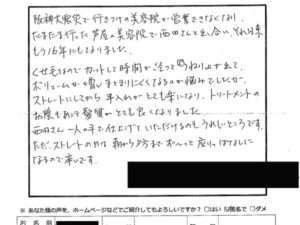 阪神大震災で行きつけの美容院が営業できなくなり、
たまたま行った芦屋の美容院で西田さんと出会い、それ以来
もう16年にもなりました。
くせ毛なのでカットして時間が経ってくるとはね上がって、
ボリュームが出、まとまりにくくなるのが悩みでしたが、
ストレートにしてから手入れがとても楽になり、トリートメントの
お陰もあって髪質がとても良くなりました。
西田さん一人の手で仕上げていただけるのもうれしいところです。
ただストレートの日は朝から夕方までずーっと座りっぱなしに
なるので辛いです。
※あなた様の声を、ホームページなどでご紹介してもよろしいですか？ □はい □匿名で □ダメ
お名前